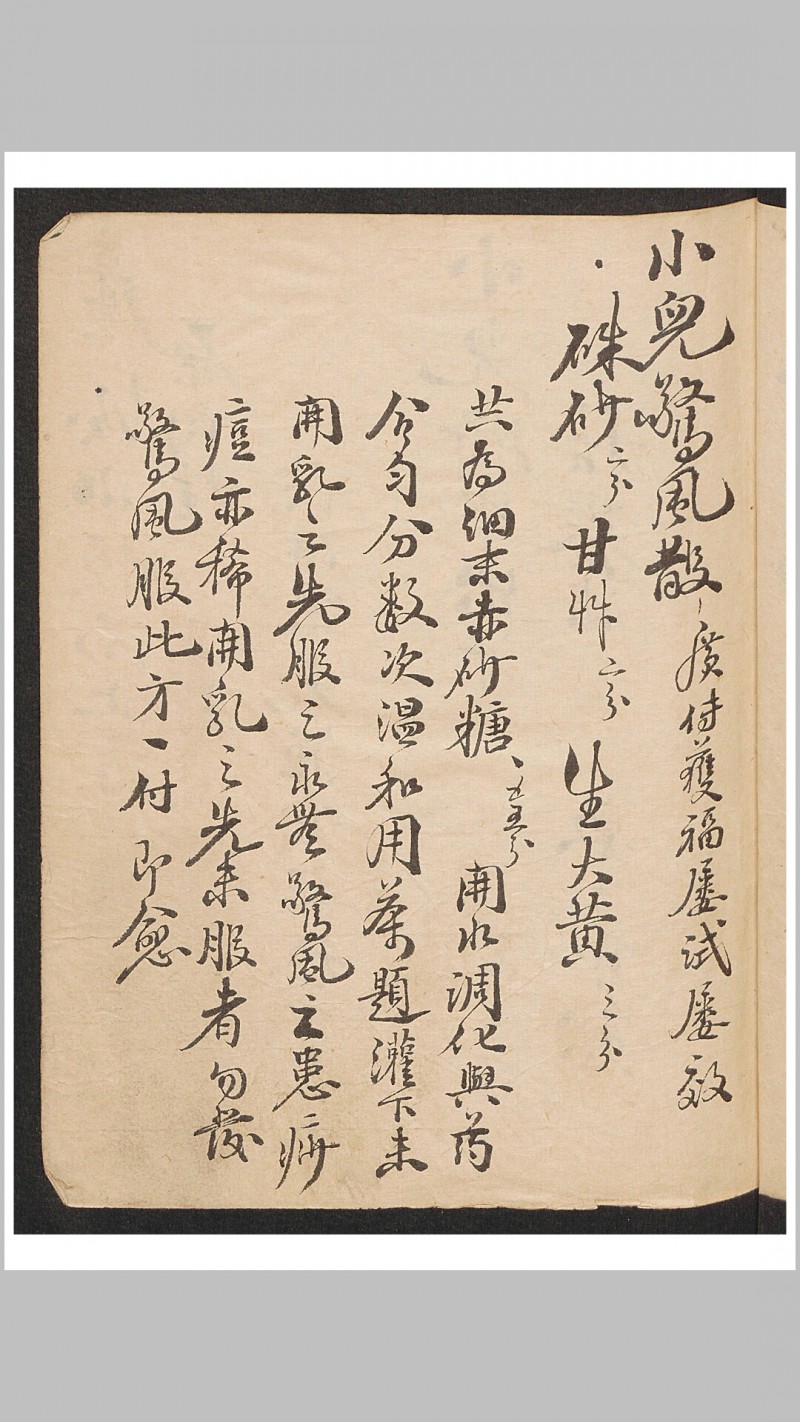 小兒驚風散 廣傳獲福屡試屡效
硃砂二分 甘艸二分 生大黄三分
共為细末赤砂糖 五分 開水調化與药
合匀分数次温和用茶題灌下未
開乳之先服之永無驚風之患痳
痘亦稀開乳之先未服者勿發
驚風服此方一付即愈